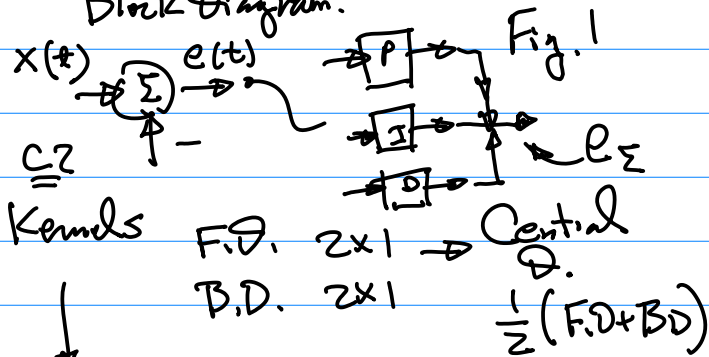 Block Diagram.
x(t) Σ e(t) P Fig. 1
−
I
C2 D e_Σ
Kernels F.D. 2x1 → Central
B.D. 2x1 D.
1/2 (F.D+BD)